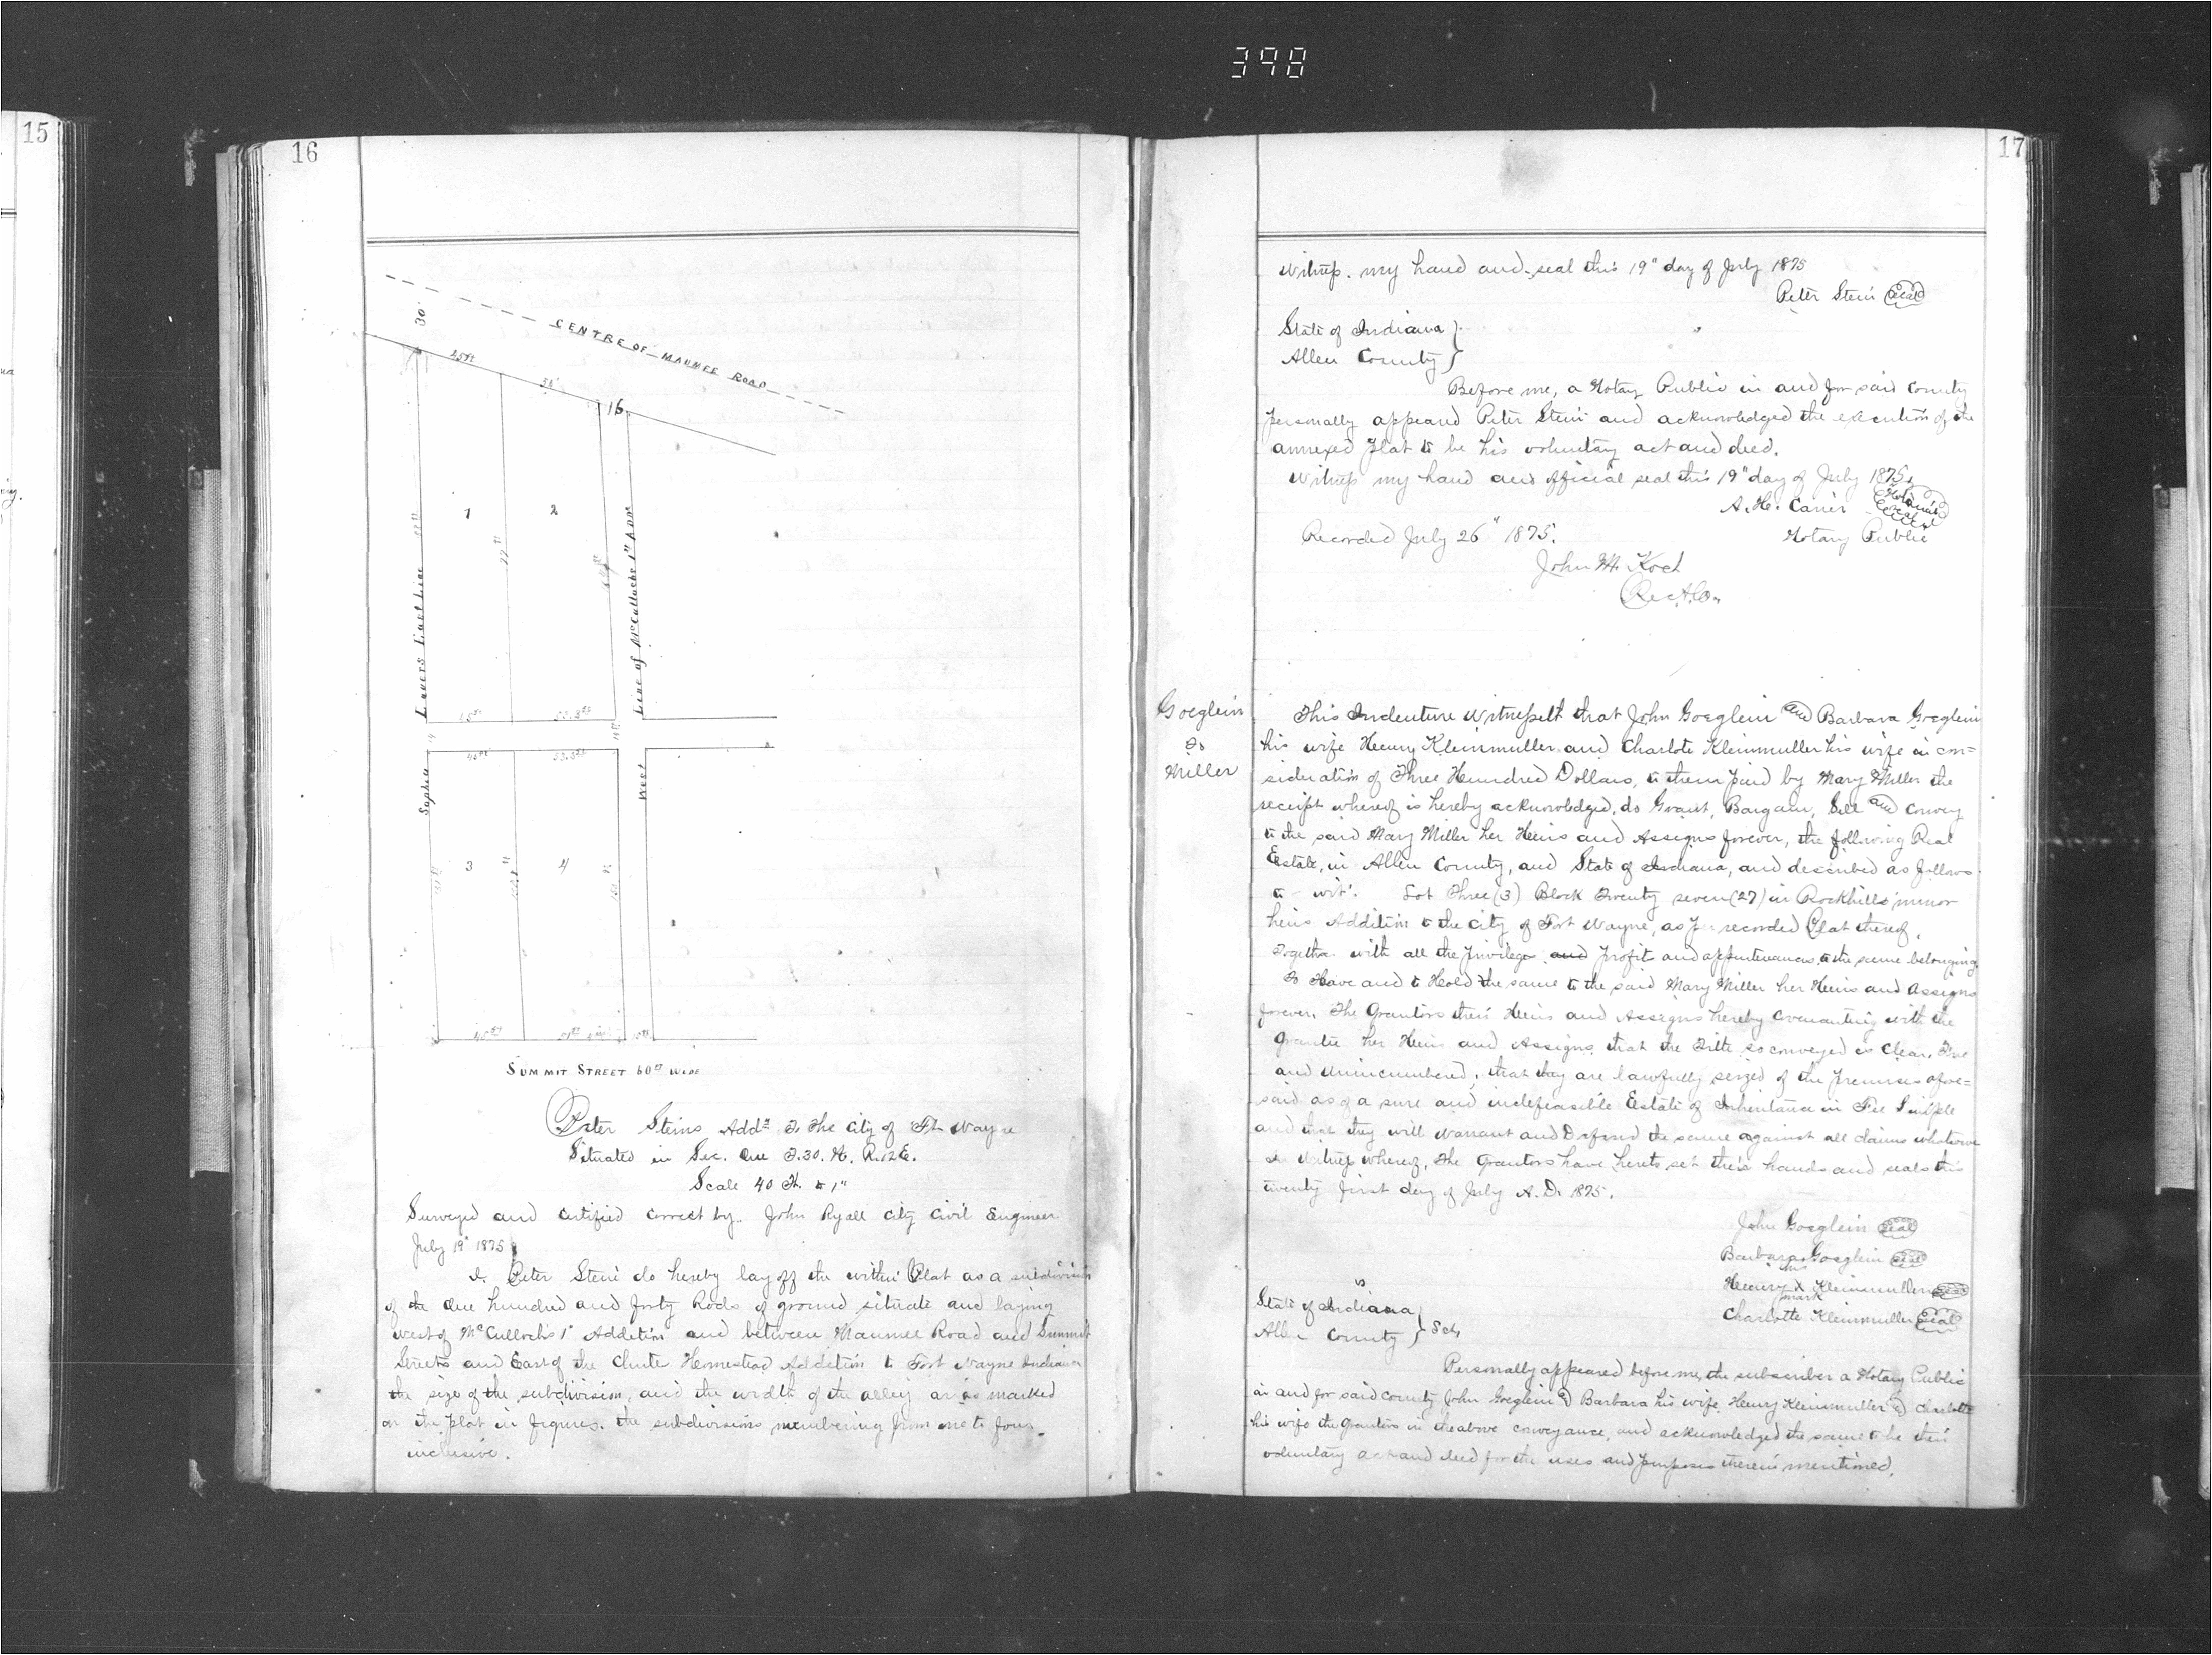 398
15
16
30'
CENTRE OF MAUMEE ROAD
25ft
50'
16
1
2
Line of McCullochs 1st Addn
East Line
Sophia
West
3
4
SUMMIT STREET 60ft WIDE
Peter Steins Addn To The City of Ft. Wayne
Situated in Sec. One T. 30. N. R. 12 E.
Scale 40 Ft. to 1"
Surveyed and certified correct by John Ryall City Civil Engineer
July 19" 1875
I. Peter Stein do hereby lay off the within Plat as a subdivision
of the One hundred and forty Rods of ground situate and laying
west of McCulloch's 1" Addition and between Maumee Road and Summit
Streets and East of the Chute Homestead Addition to Fort Wayne Indiana
the size of the subdivision, and the width of the alley are as marked
on the plat in figures. the subdivisions numbering from one to four
inclusive.
17
Witness my hand and seal this 19" day of July 1875
Peter Stein Seal
State of Indiana }
Allen County }
Before me, a Notary Public in and for said County
personally appeared Peter Stein and acknowledged the execution of the
annexed plat to be his voluntary act and deed.
Witness my hand and official seal this 19" day of July 1875.
A. H. Carier Notarial Seal
Recorded July 26" 1875. Notary Public
John M. Koch
Rec. A. Co.
Goeglein
To
Miller
This Indenture Witnesseth that John Goeglein and Barbara Goeglein
his wife Henry Kleinmuller and Charlote Kleinmuller his wife in con=
sideration of Three Hundred Dollars, to them paid by Mary Miller the
receipt whereof is hereby acknowledged, do Grant, Bargain, Sell and Convey
to the said Mary Miller her Heirs and Assigns forever, the following Real
Estate, in Allen County, and State of Indiana, and described as follows
to wit: Lot Three (3) Block Twenty seven (27) in Rockhills minor
heirs Addition to the City of Fort Wayne, as per recorded Plat thereof.
Together with all the privilege and profit and appurtenances to the same belonging.
To Have and to Hold the same to the said Mary Miller her Heirs and Assigns
forever. The Grantors their Heirs and Assigns hereby covenanting with the
Grantee her Heirs and Assigns that the Title so conveyed is Clear, Free
and Unincumbered; that they are lawfully seized of the premises afore=
said as of a sure and indefeasible Estate of Inheritance in Fee Simple
and that they will Warrant and Defend the same against all claims whatsoever
In Witness whereof, The Grantors have hereto set their hands and seals this
twenty first day of July A. D. 1875.
John Goeglein Seal
Barbara Goeglein Seal
his
Henry X Kleinmuller Seal
mark
Charlotte Kleinmuller Seal
State of Indiana }
Allen County } Sct,
Personally appeared before me, the subscriber a Notary Public
in and for said County John Goeglein & Barbara his wife, Henry Kleinmuller & Charlotte
his wife the grantors in the above conveyance, and acknowledged the same to be their
voluntary act and deed for the uses and purposes therein mentioned.